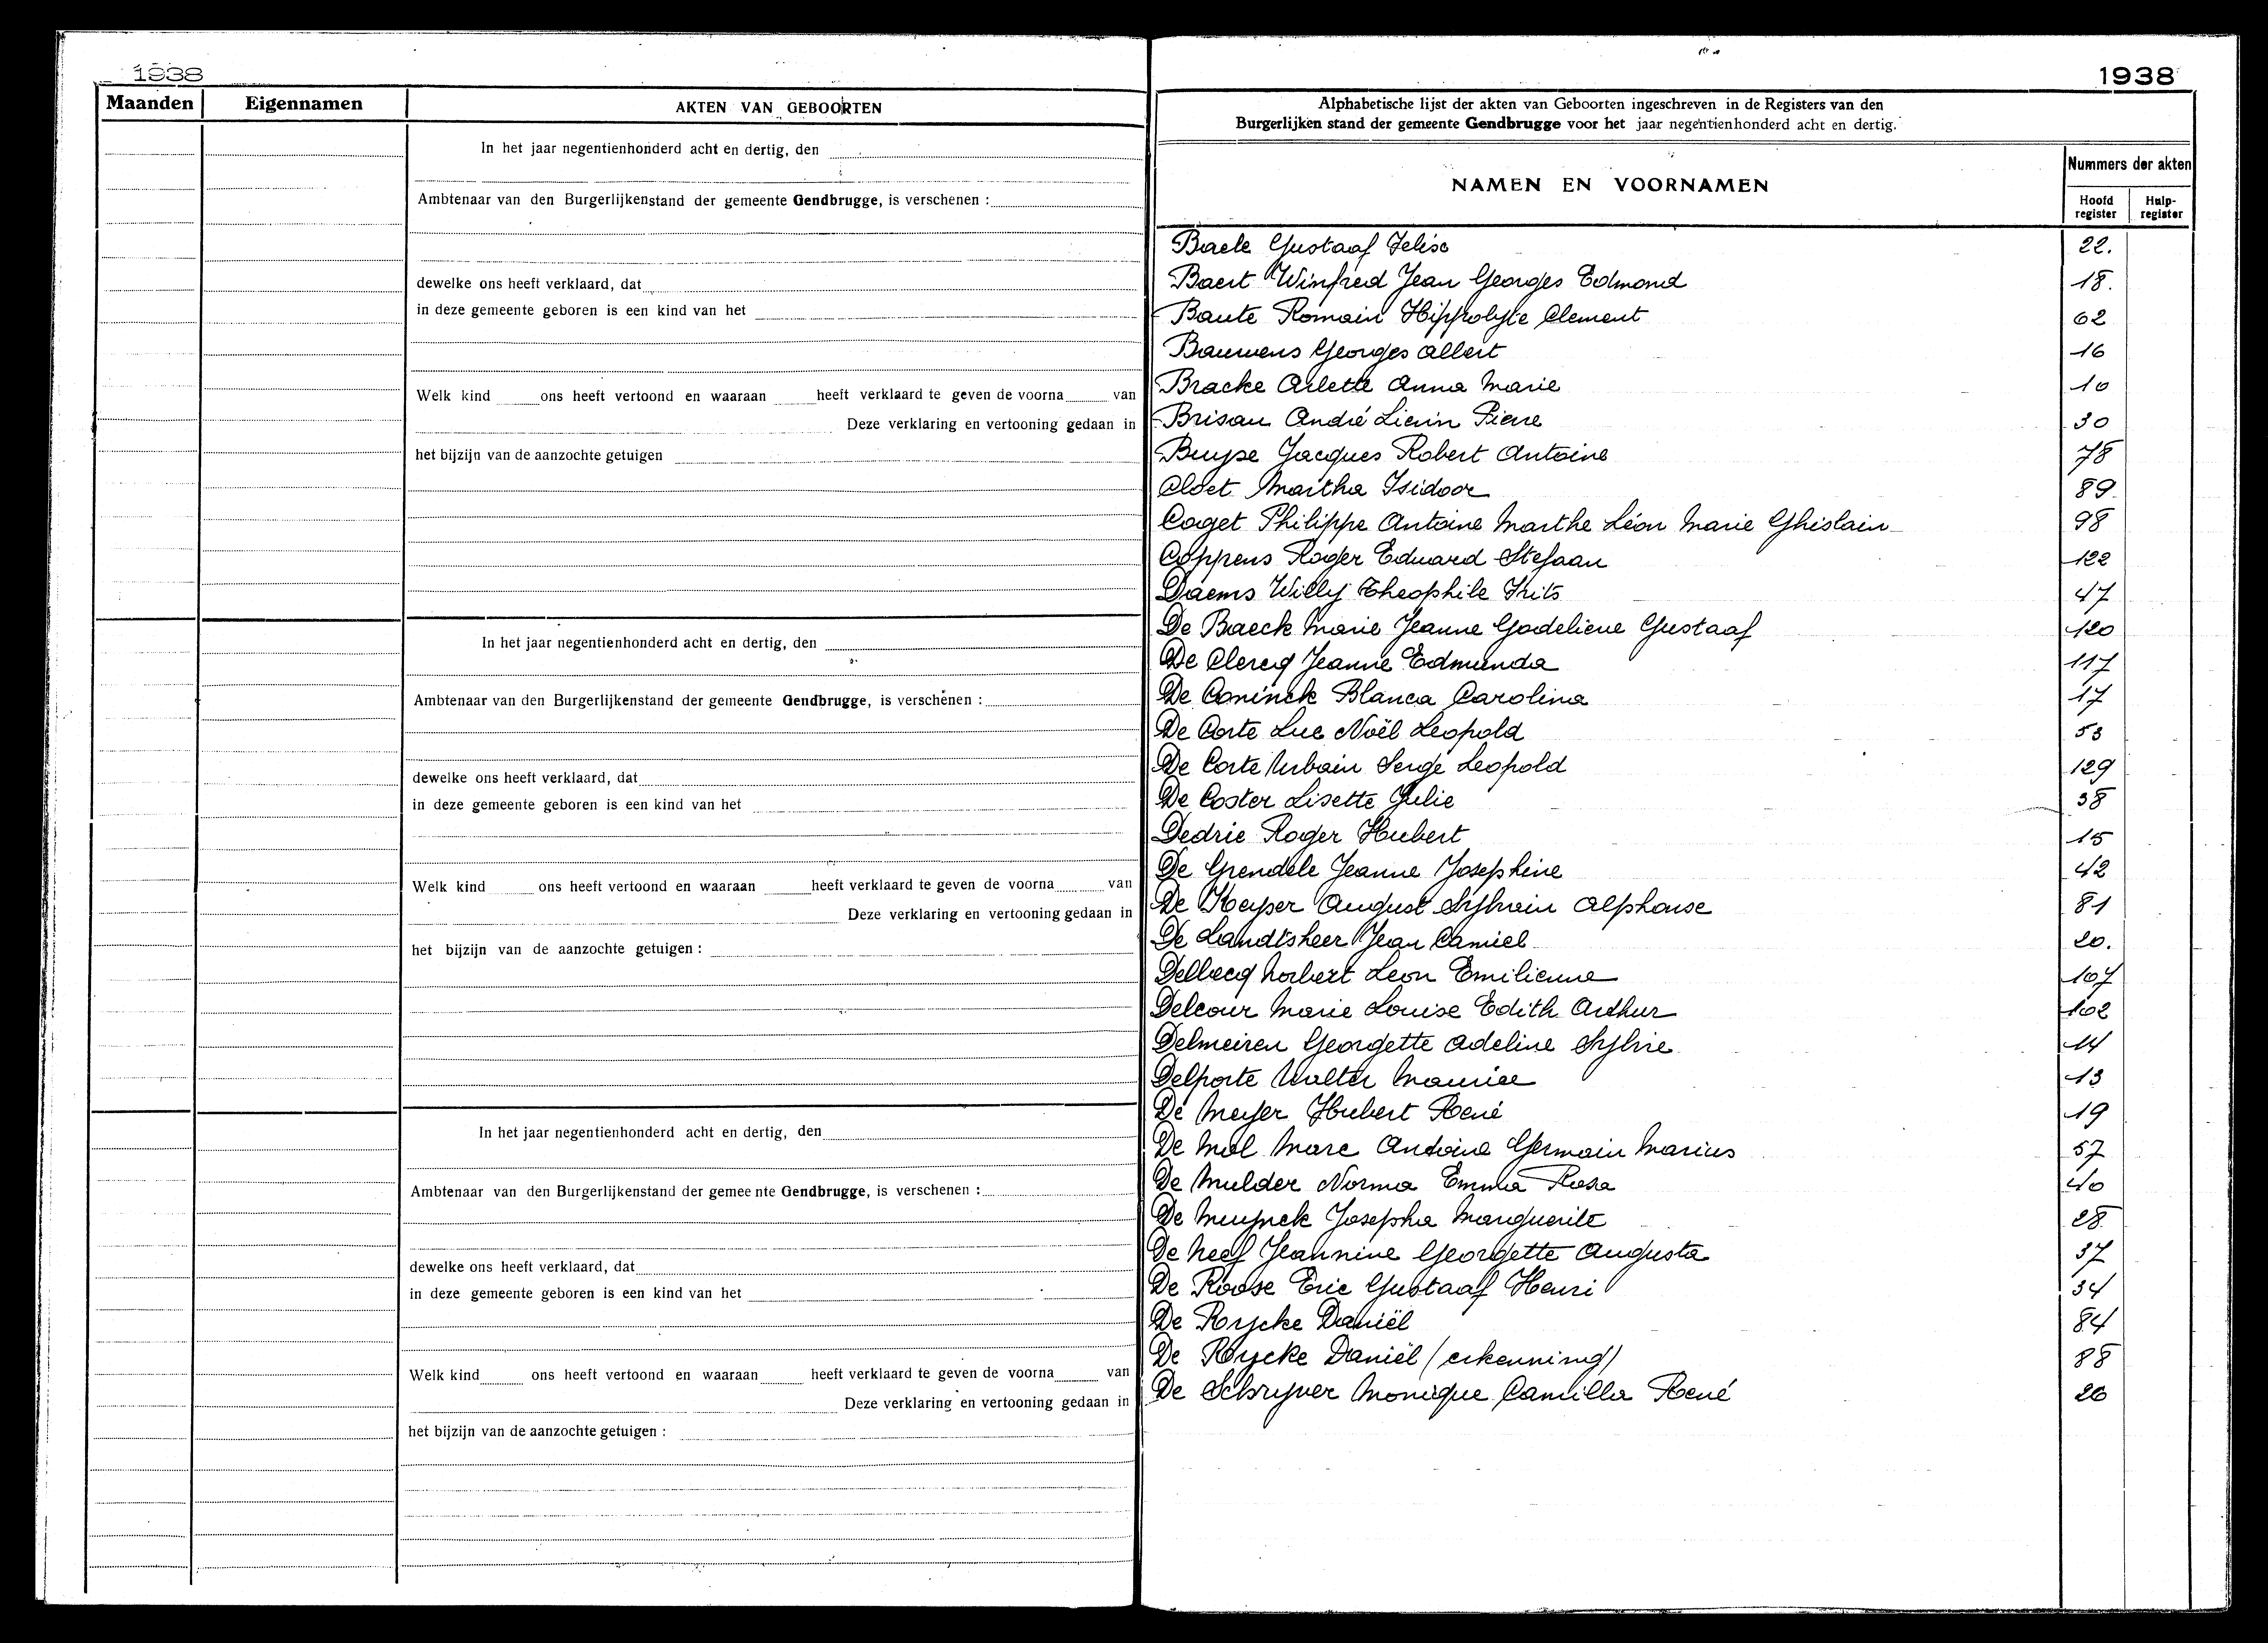 1938
Maanden
Eigennamen
AKTEN VAN GEBOORTEN
In het jaar negentienhonderd acht en dertig, den
Ambtenaar van den Burgerlijkenstand der gemeente Gendbrugge, is verschenen :
dewelke ons heeft verklaard, dat
in deze gemeente geboren is een kind van het
Welk kind ons heeft vertoond en waaraan heeft verklaard te geven de voorna van
Deze verklaring en vertooning gedaan in
het bijzijn van de aanzochte getuigen
In het jaar negentienhonderd acht en dertig, den
Ambtenaar van den Burgerlijkenstand der gemeente Gendbrugge, is verschenen :
dewelke ons heeft verklaard, dat
in deze gemeente geboren is een kind van het
Welk kind ons heeft vertoond en waaraan heeft verklaard te geven de voorna van
Deze verklaring en vertooning gedaan in
het bijzijn van de aanzochte getuigen :
In het jaar negentienhonderd acht en dertig, den
Ambtenaar van den Burgerlijkenstand der gemeente Gendbrugge, is verschenen :
dewelke ons heeft verklaard, dat
in deze gemeente geboren is een kind van het
Welk kind ons heeft vertoond en waaraan heeft verklaard te geven de voorna van
Deze verklaring en vertooning gedaan in
het bijzijn van de aanzochte getuigen :
1938
Alphabetische lijst der akten van Geboorten ingeschreven in de Registers van den
Burgerlijken stand der gemeente Gendbrugge voor het jaar negentienhonderd acht en dertig.
NAMEN EN VOORNAMEN
Nummers der akten
Hoofd register
Hulp-register
Baele Gustaaf Felise 22.
Baert Winfred Jean Georges Edmond 18.
Baute Romain Hippolyte Clement 62
Bauwens Georges Albert 16
Bracke Arlette Anna Marie 10
Brisau André Lievin Pierre 30
Buyse Jacques Robert Antoine 78
Cloet Martha Isidoor 89
Coget Philippe Antoine Marthe Léon Marie Ghislain 98
Coppens Roger Eduard Stefaan 122
Daems Willy Theophile Frits 47
De Baeck Marie Jeanne Godelieve Gustaaf 120
De Clercq Jeanne Edmunda 117
De Coninck Blanca Carolina 17
De Corte Luc Noël Leopold 53
De Corte Urbain Serge Leopold 129
De Coster Lisette Julie 38
Dedrie Roger Hubert 15
De Grendele Jeanne Josephine 42
De Keyser August Sylvain Alphonse 81
De Landtsheer Jean Camiel 20.
Delbecq Norbert Leon Emilienne 107
Delcour Marie Louise Edith Arthur 102
Delmeiren Georgette Adeline Sylvie 14
Delporte Walter Maurice 13
De Meyer Hubert René 19
De Mol Marc Antoine Germain Marius 57
De Mulder Norma Emma Rosa 40
De Muynck Josepha Marguerite 28
De Neef Jeannine Georgette Augusta 37
De Roose Eric Gustaaf Henri 34
De Rycke Daniël 84
De Rycke Daniël (erkenning) 88
De Schryver Monique Camilla René 26